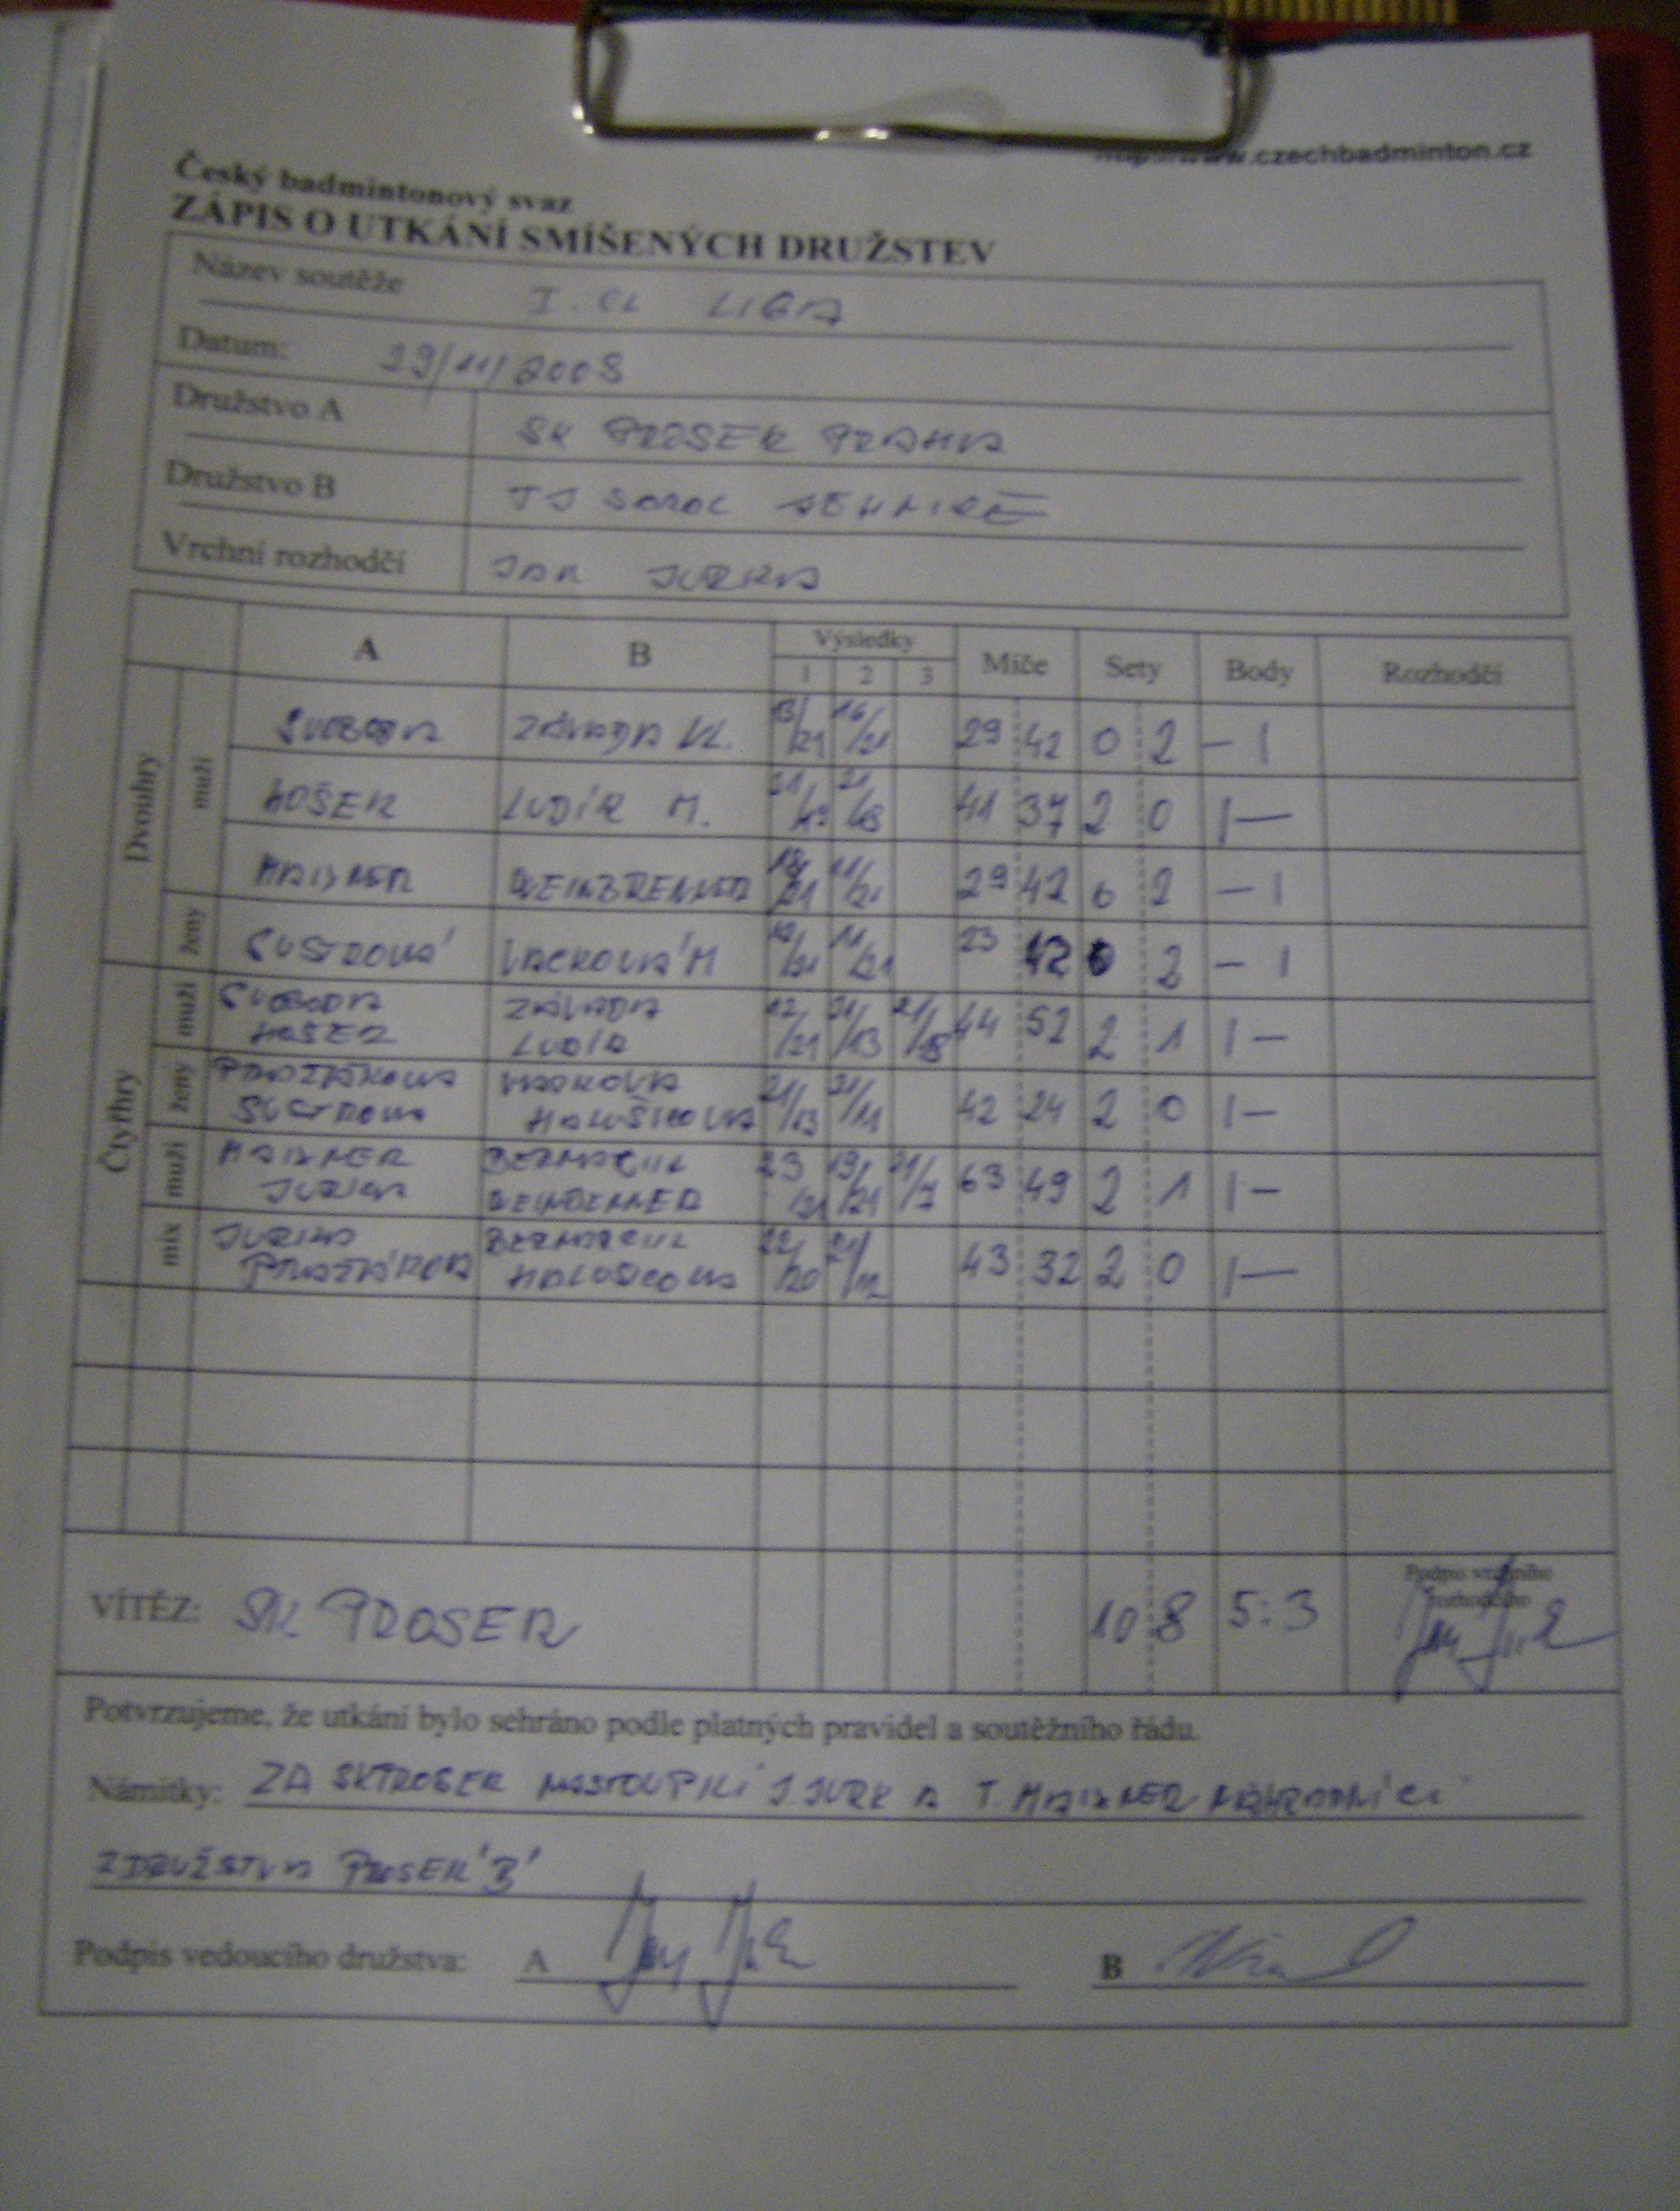 www.czechbadminton.cz
Český badmintonový svaz
ZÁPIS O UTKÁNÍ SMÍŠENÝCH DRUŽSTEV
Název soutěže I. CL LIGA
Datum: 29/11/2008
Družstvo A SK PROSEK PRAHA
Družstvo B TJ SOKOL
Vrchní rozhodčí JAN JURKA
A B Výsledky Míče Sety Body Rozhodčí
1 2 3
Dvouhry muži SVOBODA ZÁVADA VL. 13/21 16/21 29 42 0 2 – 1
HOŠEK LUDÍK M. 21/19 21/18 41 37 2 0 1 –
MAIXNER WEINBRENNER 18/21 11/21 29 42 0 2 – 1
ženy SUSTROVÁ VACKOVÁ M 12/21 11/21 23 42 0 2 – 1
Čtyřhry muži SVOBODA ZÁVADA 12/21 21/13 21/18 44 52 2 1 1 –
HOŠEK LUDÍK
ženy PRAŽÁKOVA VACKOVA 21/13 21/11 42 24 2 0 1 –
SUSTROVA HALUŠKOVA
muži MAIXNER 23/21 19/21 21/7 63 49 2 1 1 –
JURKA
mix JURKA 22/20 21/12 43 32 2 0 1 –
VÍTĚZ: SK PROSEK 10 8 5:3 Podpis vrchního
rozhodčího
Potvrzujeme, že utkání bylo sehráno podle platných pravidel a soutěžního řádu.
Námitky: ZA SK PROSEK NASTOUPILI J. JURK A T. MAIXNER NÁHRADNÍCI
Z DRUŽSTVA PROSEK 'B'
Podpis vedoucího družstva: A B